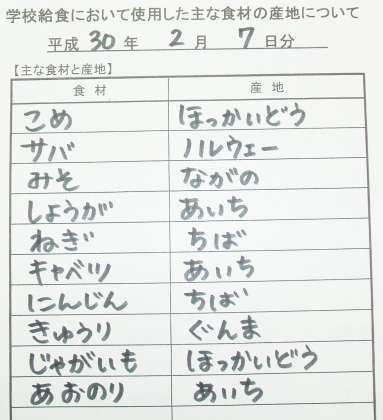 学校給食において使用した主な食材の産地について
平成 30 年 2 月 7 日分
【主な食材と産地】
食材 産地
こめ ほっかいどう
サバ ノルウェー
みそ ながの
しょうが あいち
ねぎ ちば
キャベツ あいち
にんじん ちば
きゅうり ぐんま
じゃがいも ほっかいどう
あおのり あいち